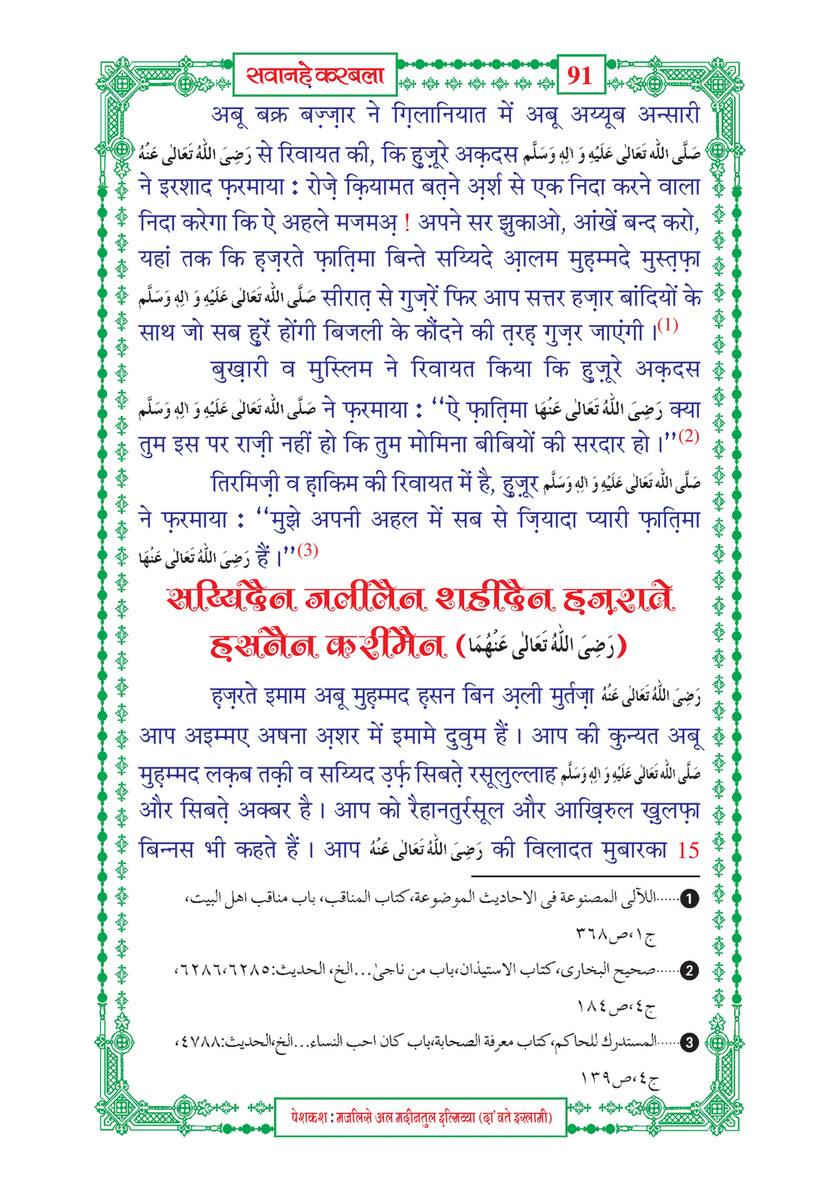 सवानहे करबला
91
अबू बक्र बज़्ज़ार ने गि़लानियात में अबू अय्यूब अन्सारी
رَضِیَ اللّٰہُ تَعَالٰی عَنْہُ से रिवायत की, कि हुज़ूरे अक़दस صَلَّی اللّٰہ تَعَالٰی عَلَیْہِ وَ اٰلِہٖ وَسَلَّم
ने इरशाद फ़रमाया : रोज़े क़ियामत बत़ने अ़र्श से एक निदा करने वाला
निदा करेगा कि ऐ अहले मजमअ़ ! अपने सर झुकाओ, आंखें बन्द करो,
यहां तक कि ह़ज़रते फ़ात़िमा बिन्ते सय्यिदे आ़लम मुह़म्मदे मुस्त़फ़ा
صَلَّی اللّٰہ تَعَالٰی عَلَیْہِ وَ اٰلِہٖ وَسَلَّم सीरात़ से गुज़रें फिर आप सत्तर हज़ार बांदियों के
साथ जो सब हुरें होंगी बिजली के कौंदने की त़रह़ गुज़र जाएंगी ।(1)
बुख़ारी व मुस्लिम ने रिवायत किया कि हुज़ूरे अक़दस
صَلَّی اللّٰہ تَعَالٰی عَلَیْہِ وَ اٰلِہٖ وَسَلَّم ने फ़रमाया : ‘‘ऐ फ़ात़िमा رَضِیَ اللّٰہُ تَعَالٰی عَنْہَا क्या
तुम इस पर राज़ी नहीं हो कि तुम मोमिना बीबियों की सरदार हो ।’’(2)
तिरमिज़ी व ह़ाकिम की रिवायत में है, हुज़ूर صَلَّی اللّٰہ تَعَالٰی عَلَیْہِ وَ اٰلِہٖ وَسَلَّم
ने फ़रमाया : ‘‘मुझे अपनी अहल में सब से ज़ियादा प्यारी फ़ात़िमा
رَضِیَ اللّٰہُ تَعَالٰی عَنْہَا हैं ।’’(3)
सय्यिदैन जलीलैन शहीदैन ह़ज़राते
ह़सनैन करीमैन (رَضِیَ اللّٰہُ تَعَالٰی عَنْہُمَا)
ह़ज़रते इमाम अबू मुह़म्मद ह़सन बिन अ़ली मुर्तज़ा رَضِیَ اللّٰہُ تَعَالٰی عَنْہُ
आप अइम्मए अषना अ़शर में इमामे दुवुम हैं । आप की कुन्यत अबू
मुह़म्मद लक़ब तक़ी व सय्यिद उ़र्फ़ सिबत़े रसूलुल्लाह صَلَّی اللّٰہ تَعَالٰی عَلَیْہِ وَ اٰلِہٖ وَسَلَّم
और सिबत़े अक्बर है । आप को रैहानतुर्रसूल और आख़िरुल ख़ुलफ़ा
बिन्नस भी कहते हैं । आप رَضِیَ اللّٰہُ تَعَالٰی عَنْہُ की विलादत मुबारका 15
1......اللآلی المصنوعة فی الاحادیث الموضوعة،کتاب المناقب، باب مناقب اهل البیت،
ج١،ص٣٦٨
2......صحیح البخاری،کتاب الاستیذان،باب من ناجیٰ...الخ، الحدیث:٦٢٨٥،٦٢٨٦،
ج٤،ص١٨٤
3......المستدرك للحاکم،کتاب معرفة الصحابة،باب کان احب النساء...الخ،الحدیث:٤٧٨٨،
ج٤،ص١٣٩
पेशकश : मजलिसे अल मदीनतुल इल्मिय्या (दा'वते इस्लामी)